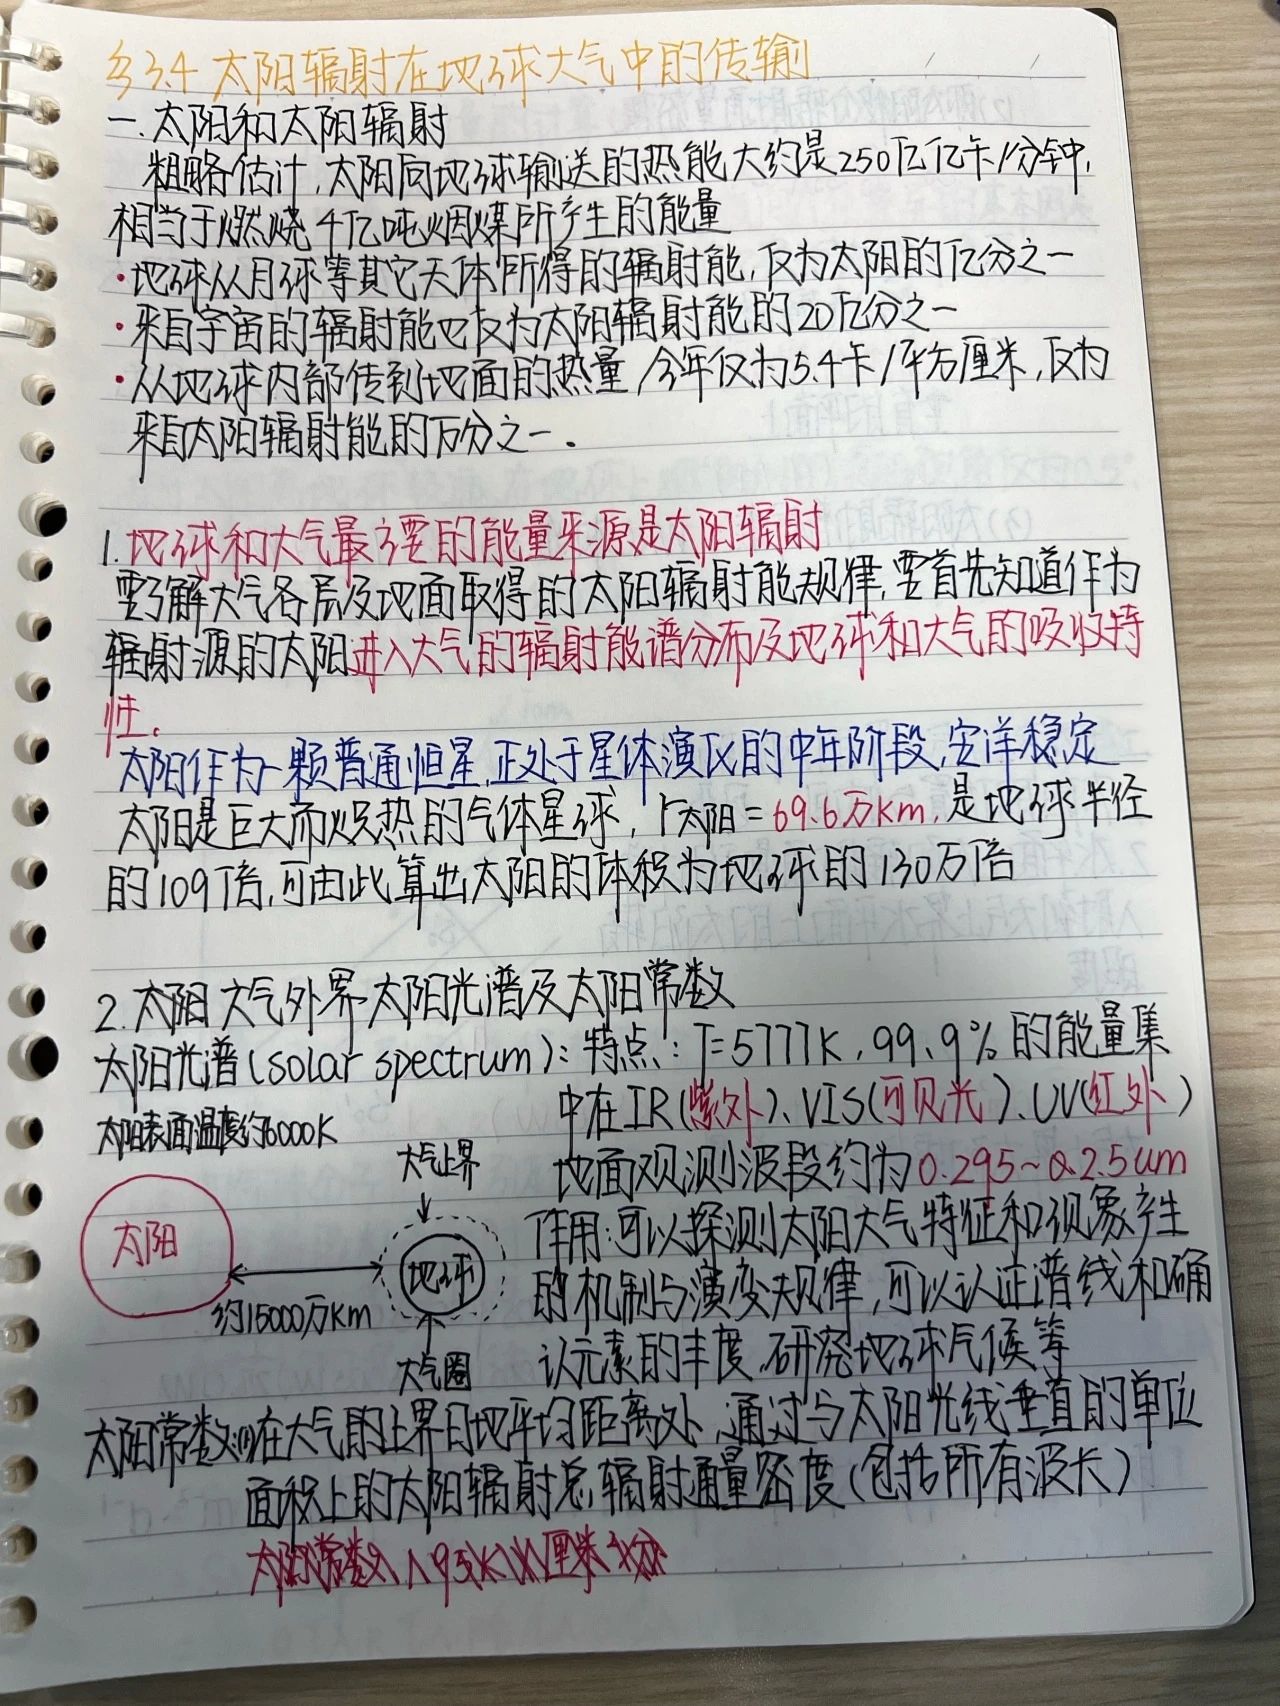 §3.4 太阳辐射在地球大气中的传输
一.太阳和太阳辐射
粗略估计,太阳向地球输送的热能大约是250亿亿卡/分钟,
相当于燃烧4亿吨烟煤所产生的能量
·地球从月球等其它天体所得的辐射能,仅为太阳的亿分之一
·来自宇宙的辐射能也仅为太阳辐射能的20亿分之一
·从地球内部传到地面的热量,全年仅为5.4卡/平方厘米,仅为
来自太阳辐射能的万分之一.
1.地球和大气最主要的能量来源是太阳辐射
要了解大气各层及地面取得的太阳辐射能规律,要首先知道作为
辐射源的太阳进入大气的辐射能谱分布及地球和大气的吸收特
性.
太阳作为一颗普通恒星,正处于星体演化的中年阶段,安详稳定
太阳是巨大而炽热的气体星球,r太阳=69.6万km,是地球半径
的109倍,可由此算出太阳的体积为地球的130万倍
2.太阳大气外界太阳光谱及太阳常数
太阳光谱(solar spectrum):特点:T=5777K,99.9%的能量集
中在IR(紫外)、VIS(可见光)、UV(红外)
太阳表面温度约6000K
地面观测波段约为0.295~0.2.5um
大气上界
作用:可以探测太阳大气特征和现象产生
太阳
地球
的机制与演变规律,可以认证谱线和确
约15000万km
认元素的丰度,研究地球气候等
大气圈
太阳常数:在大气的上界日地平均距离处,通过与太阳光线垂直的单位
面积上的太阳辐射总辐射通量密度(包括所有波长)